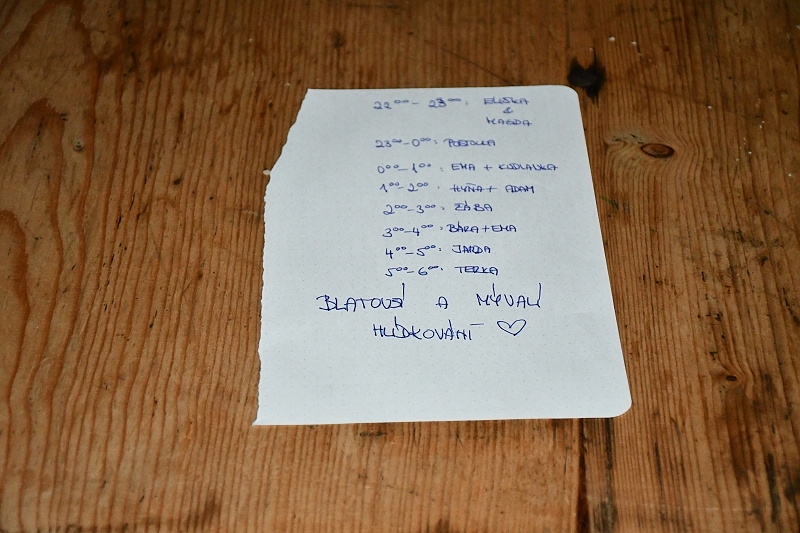 22⁰⁰ - 23⁰⁰: ELIŠKA
&
MAGDA
23⁰⁰-0⁰⁰: POSTOLKA
0⁰⁰-1⁰⁰: EMA + KUDLANKA
1⁰⁰-2⁰⁰: HÝŇA + ADAM
2⁰⁰-3⁰⁰: ŽÁBA
3⁰⁰-4⁰⁰: BÁRA+EMA
4⁰⁰-5⁰⁰: JARDA
5⁰⁰-6⁰⁰: TERKA
A MÝVALÍ
HLÍDKOVÁNÍ ♡